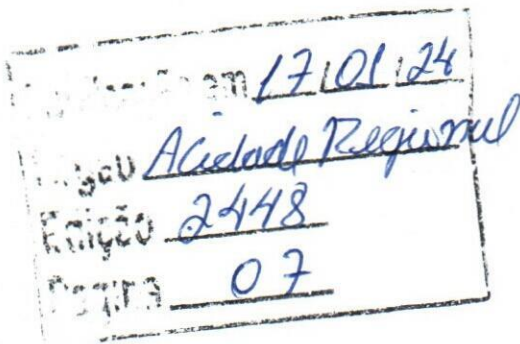 em 17/01/24
Acidade Regional
Edição 2448
Página 07